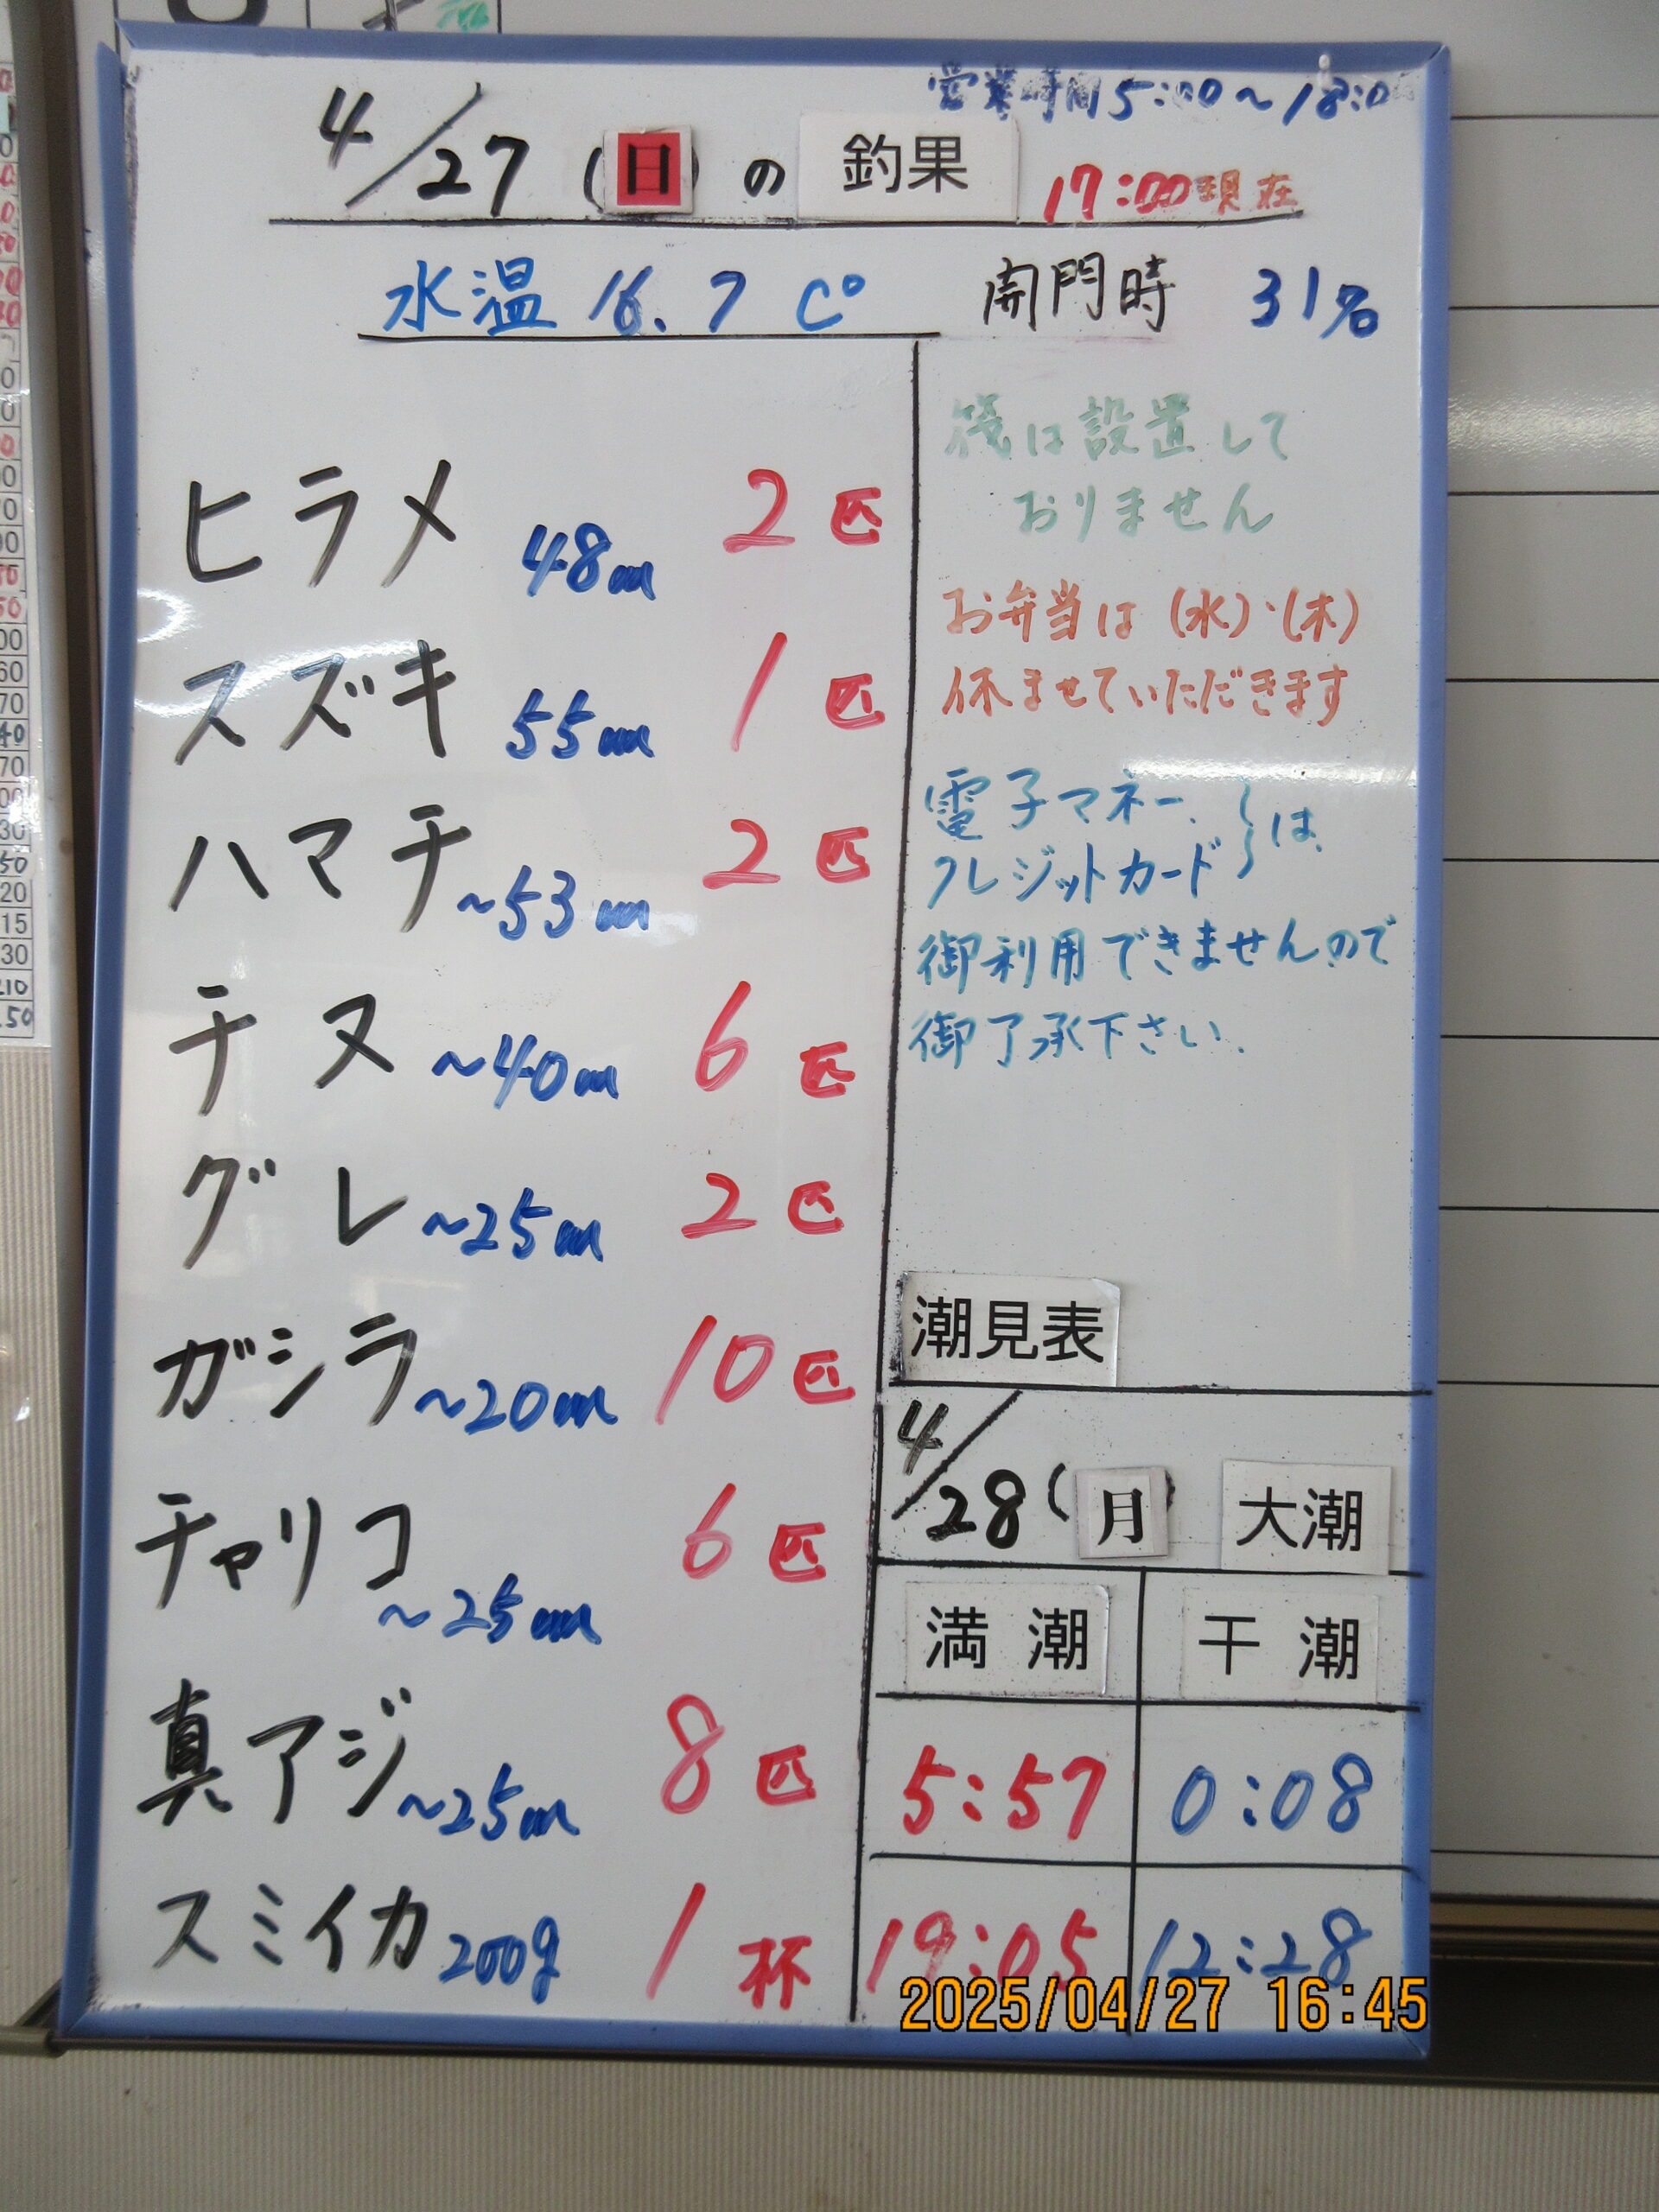 営業時間 5:00～18:00
4/27 (日) の 釣果 17:00現在
水温 16.7 C° 開門時 31名
ヒラメ 48cm 2匹
スズキ 55cm 1匹
ハマチ ~53cm 2匹
チヌ ~40cm 6匹
グレ ~25cm 2匹
ガシラ ~20cm 10匹
チャリコ ~25cm 6匹
真アジ ~25cm 8匹
スミイカ 200g 1杯
筏は設置して
おりません
お弁当は(水)·(木)
休ませていただきます
電子マネー、
クレジットカード は
御利用できませんので
御了承下さい.
潮見表
4/28 (月) 大潮
満潮 干潮
5:57 0:08
19:05 12:28
2025/04/27 16:45